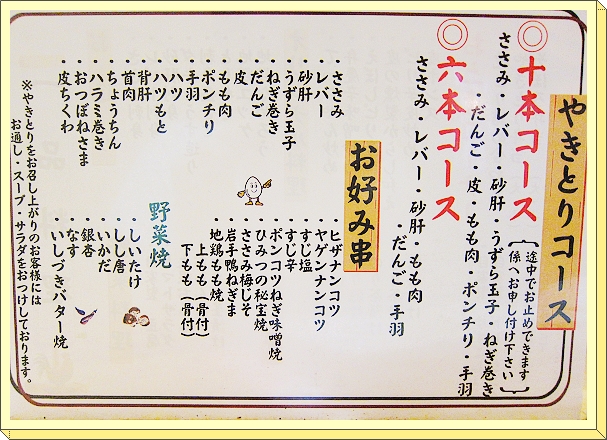 やきとりコース
◎十本コース
(途中でお止めできます
係へお申し付け下さい)
ささみ・レバー・砂肝・うずら玉子・ねぎ巻き
・だんご・皮・もも肉・ポンチリ・手羽
◎六本コース
ささみ・レバー・砂肝・もも肉
・だんご・手羽
お好み串
・ささみ
・レバー
・砂肝
・うずら玉子
・ねぎ巻き
・だんご
・皮
・もも肉
・ポンチリ
・手羽
・ハツ
・ハツもと
・背肝
・首肉
・ちょうちん
・ハラミ巻き
・おつぼねさま
・皮ちくわ
・ヒザナンコツ
・ヤゲンナンコツ
・すじ塩
・すじ辛
・ポンコツねぎ味噌焼
・ひみつの秘宝焼
・ささみ梅じそ
・岩手鴨ねぎま
・地鶏もも焼
上もも(骨付)
下もも(骨付)
野菜焼
・しいたけ
・しし唐
・いかだ
・銀杏
・なす
・いしづきバター焼
※やきとりをお召し上がりのお客様には
お通し・スープ・サラダをおつけしております。